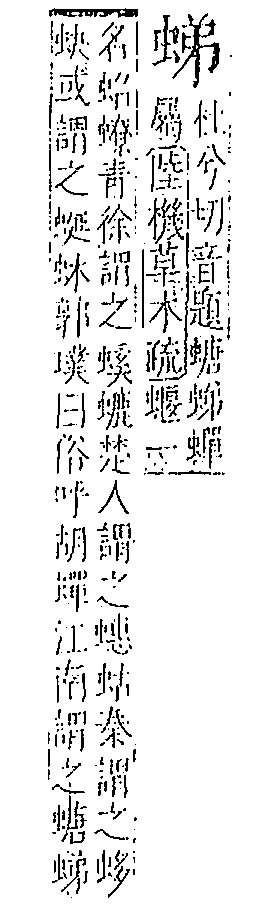 𧋘
杜兮切音題螗𧋘蟬
屬陸機草木疏蝘一
名蛁蟟青徐謂之螇螰楚人謂之蟪蛄秦謂之蛥
蚗或謂之蜓蚞郭璞曰俗呼胡蟬江南謂之螗𧋘